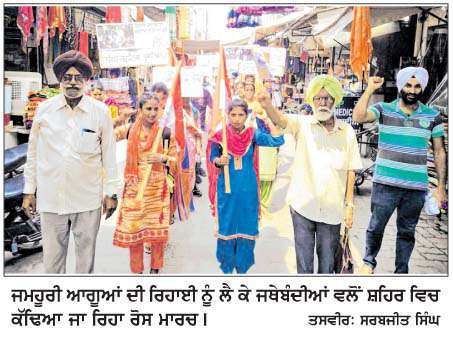 ਜਮਹੂਰੀ ਆਗੂਆਂ ਦੀ ਰਿਹਾਈ ਨੂੰ ਲੈ ਕੇ ਜਥੇਬੰਦੀਆਂ ਵਲੋਂ ਸ਼ਹਿਰ ਵਿਚ
ਕੱਢਿਆ ਜਾ ਰਿਹਾ ਰੋਸ ਮਾਰਚ। ਤਸਵੀਰ: ਸਰਬਜੀਤ ਸਿੰਘ